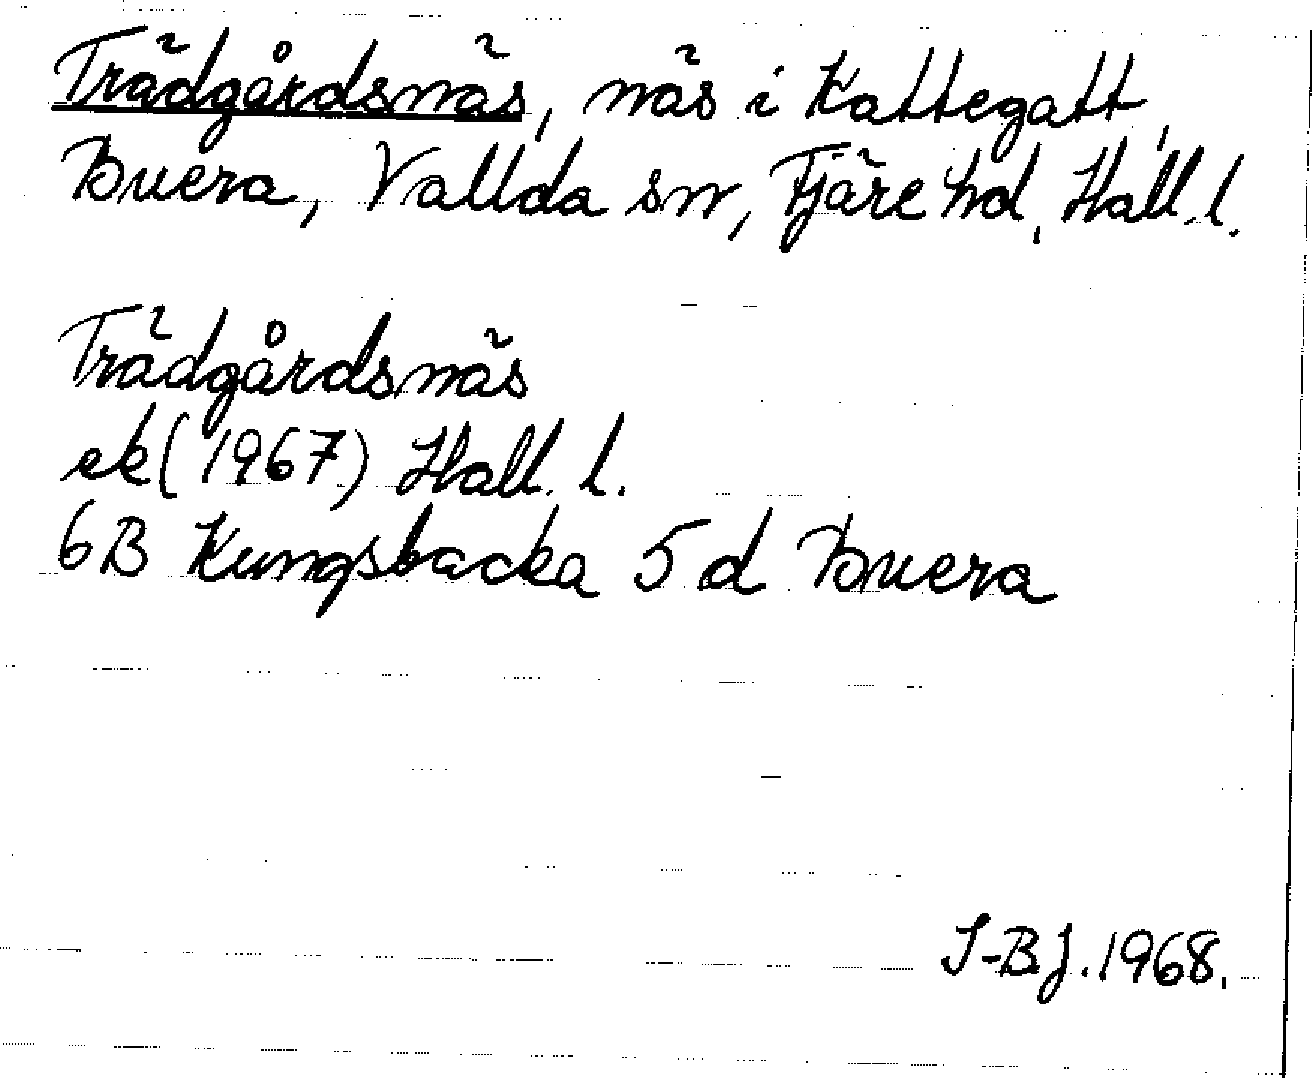 Trädgårdsnäs, näs i Kattegatt,
Buera, Vallda sn, Fjäre hd, Hall. l.
Trädgårdsnäs
ek (1967) Hall. l.
6B Kungsbacka 5 d Buera
I-B J. 1968.